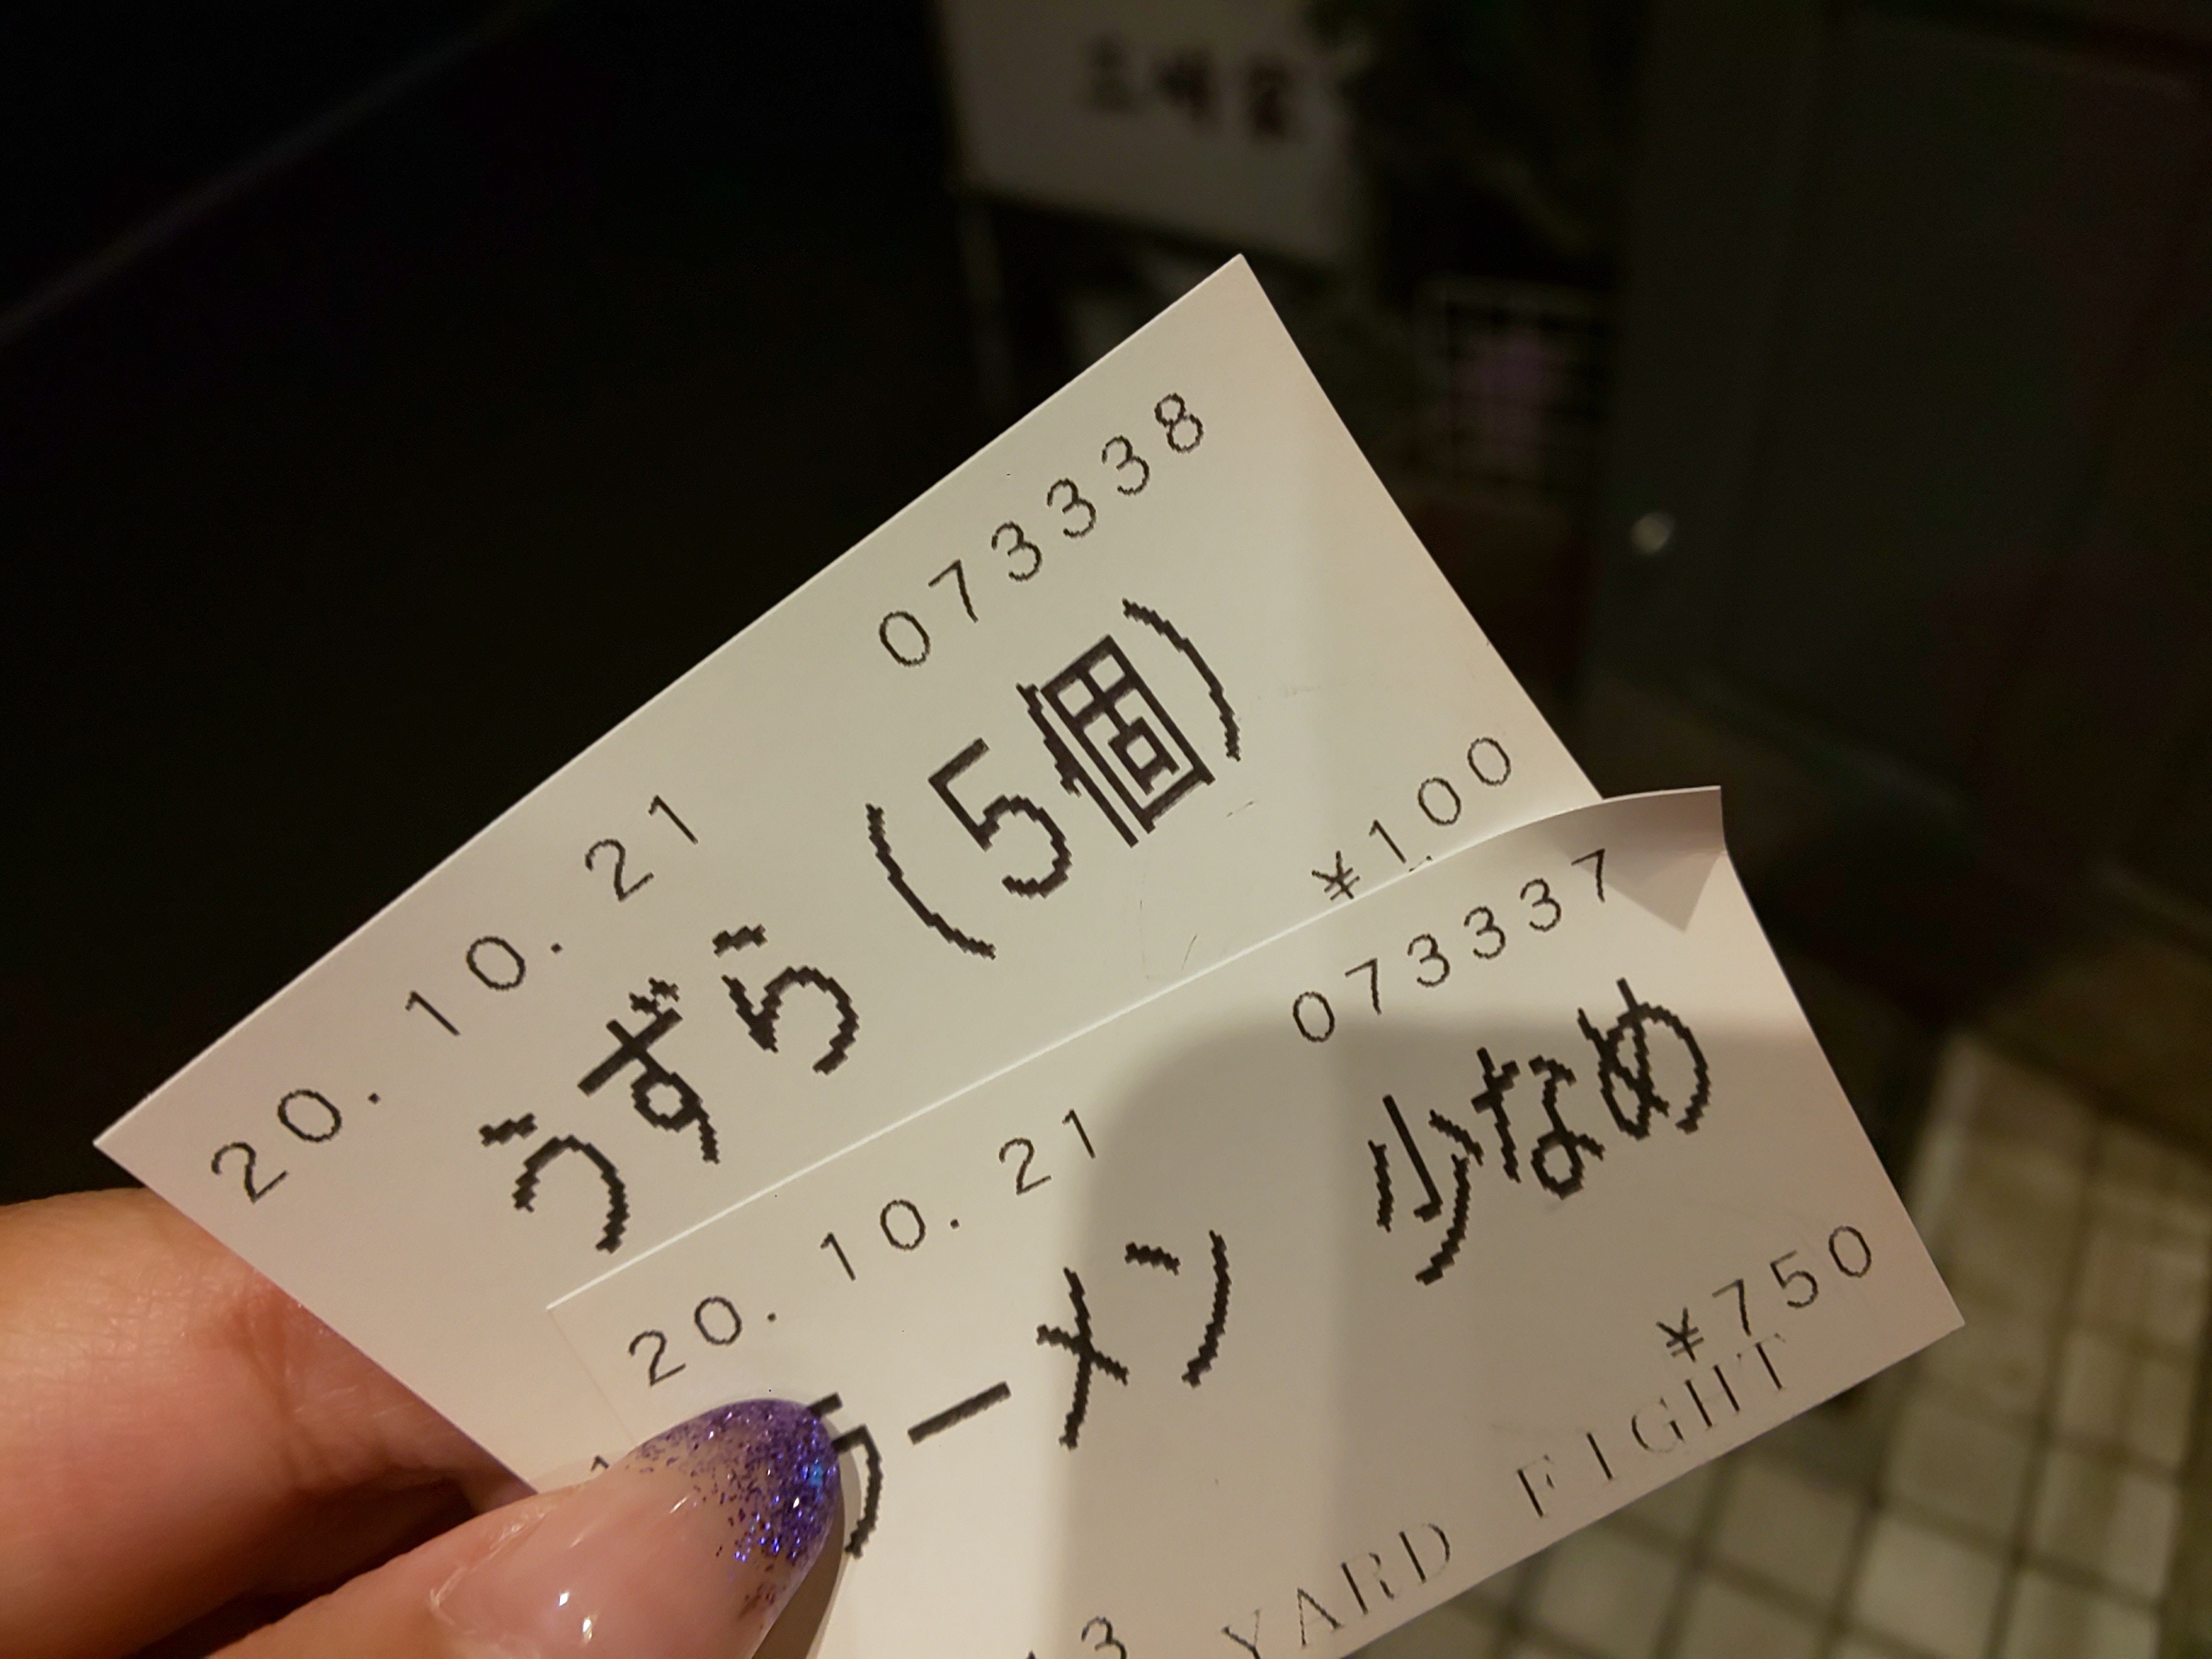 20.10.21 073338
うずら(5個)
¥100
20.10.21 073337
ラーメン 少なめ
¥750
YARD FIGHT